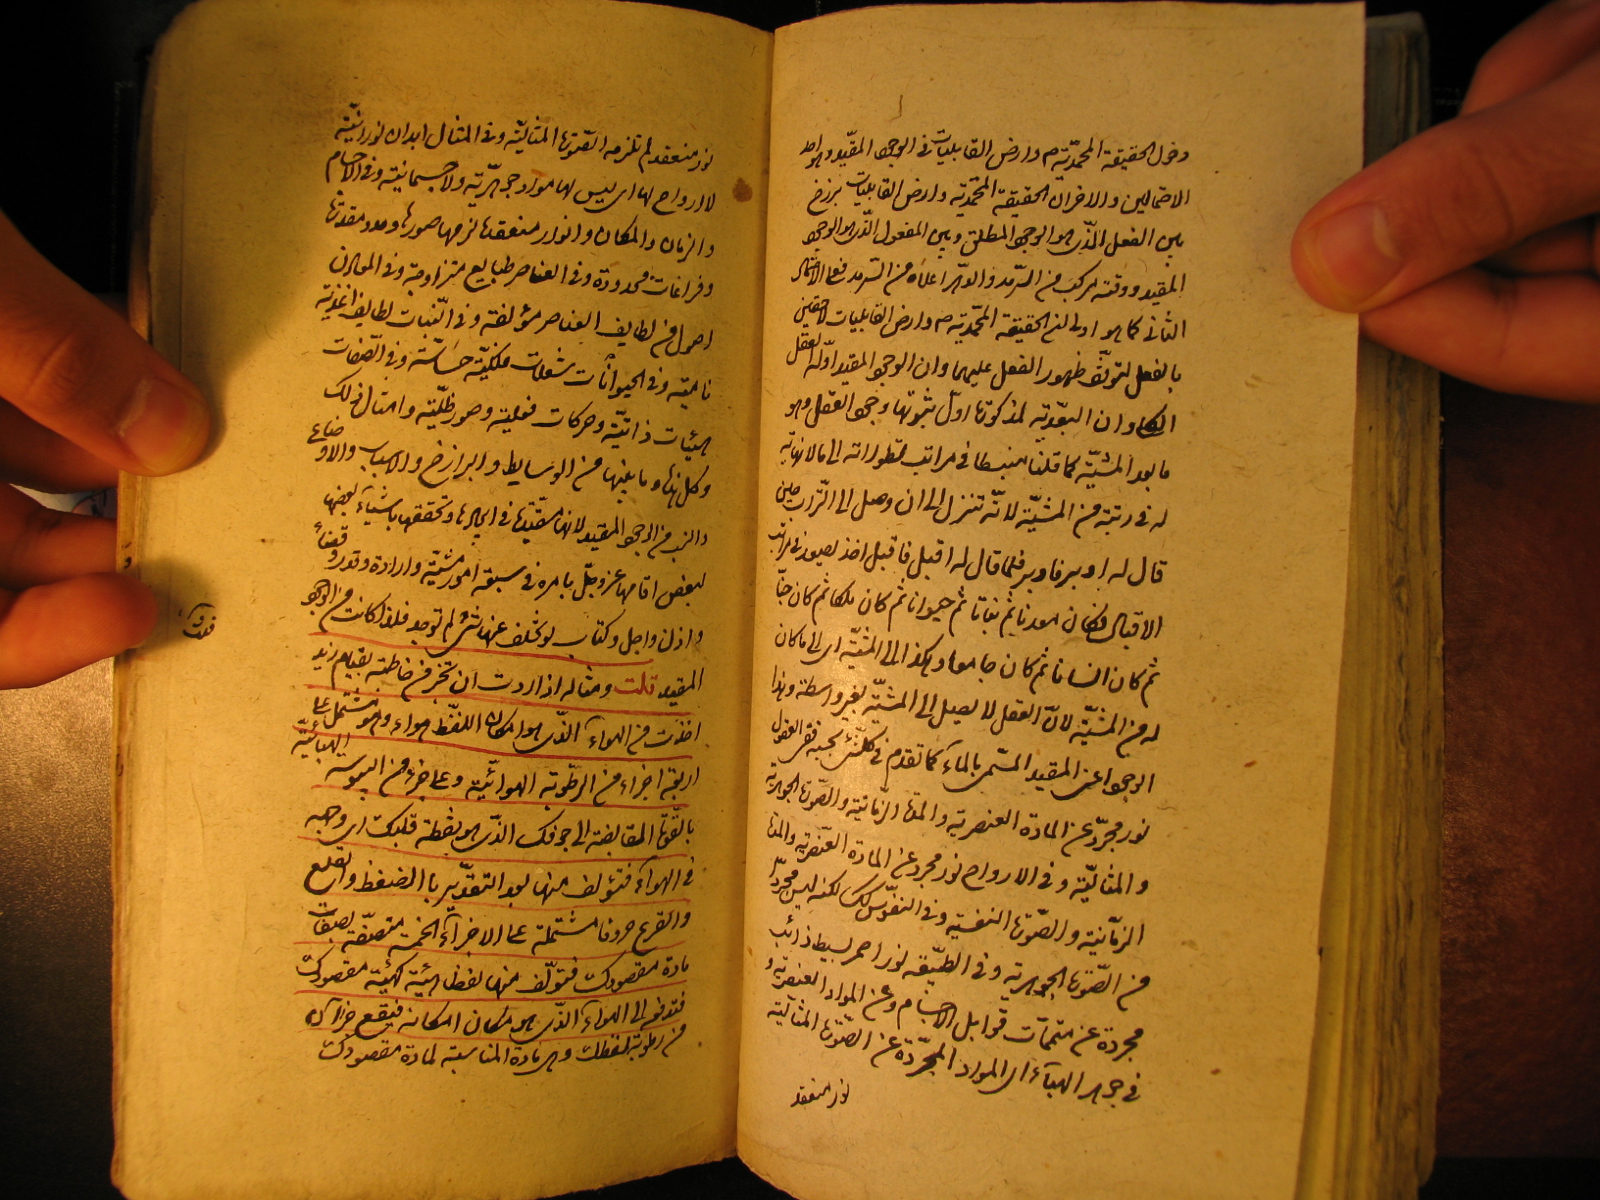 دخول الحقيقة المحمّدية ص وارض القابليات في الوجود المقيد وهو احد
الاحتمالين والاخر ان الحقيقة المحمّدية وارض القابليات برزخ
بين الفعل الذي هو الوجود المطلق وبين المفعول الذي هو الوجود
المقيد ووقته مركب من السّرمد والدهر اعلاه من السّرمد فعلى الاحتمال
الثاني كما هو اولى ان الحقيقة المحمّدية ص وارض القابليات لاحقين
بالفعل لتوقّف ظهور الفعل عليهما وان الوجود المقيد اوّله العقل
الكلي وان البعدية لمذكورتها اول ثبوتها وجود العقل وهو
ما بعد المشيّة كما قلنا منبسطا في مراتب تطوراته الى ما لا نهاية
له في رتبة من المشيّة لانّه تنزل الى ان وصل الى التّراب حين
قال له ادبر فادبر فلما قال له اقبل فاقبل اخذ يصعد في مراتب
الاقبال فكان معدنا ثم نباتا ثم حيوانا ثم كان ملكا ثم كان جنّا
ثم كان انسانا ثم كان جامعا وهكذا الى المشيّة اي الى ما كان
له من المشيّة لانّ العقل لا يصل الى المشيّة بغير واسطة وهذا
الوجود اعني المقيد المسمّى بالماء كما تقدم في كلّ شئ بحسبه ففي العقول
نور مجرّد عن المادة العنصرية والمدة الزّمانية والصّورة الجوهرية
والمثاليّة وفي الارواح نور مجرد عن المادة العنصرية والمدة
الزمّانية والصّورة النفسية وفي النفوس كك لكنه ليس مجردّا
من الصّورة الجوهرية وفي الطبيعة نور احمر بسيط ذائب
مجردة عن متممّات قوابل الاجسام وعن المواد العنصرية و
في جوهر الهباء اي المواد المجرّدة عن الصّورة المثاليّة
نور منعقد
نور منعقد لم تلزمه الصّورة المثاليّة وفي المثال ابدان نورانيّة
لا ارواح لها اي ليس لها مواد جوهريّة ولا جسمانية وفي الاجسام
والزمان والمكان وانوار منعقدة لزمها صورها ومدد مقدرة
وفراغات محدودة وفي العناصر طبايع متزاوجة وفي المعادن
اصول من لطايف العناصر مؤلفة وفي النّبات لطايف اغذية
نامية وفي الحيوانات شعلات فلكيّة حسّاسة وفي الصّفات
هيئات ذاتيّة وحركات فعلية وصور ظلّية وامثال ذلك
وكل هذه وما بينها من الوسايط والبرازخ والاسباب والاوضاع
والنسب من الوجود المقيد لانها مقيّدة في ايجادها وتحققها باشياء بعضها
لبعض اقامها عز وجلّ بامره في سبعة امور مشيّة وارادة وقدر وقضاء
واذن واجل وكتاب لو تخلف عنها شئ لم توجد فلذا كانت من الوجود
المقيد قلت ومثاله اذا اردت ان تخبر من خاطبته بقيام زيد
اخذت من الهواء الذي هو امكان اللفظ هواء وهو مشتمل على
اربعة اجزاء من الرّطوبة الهوائيّة وعلى جزء من اليبوسة الهبائيّة
بالقوة القابضة الى جوفك الذي هو نقطة قلبك اي وجهه
في الهواء فتؤلف منها بعد التقدير با الضغط والقلع
والقرع حروفا مشتملة على الاجزاء الخمسة متصفة بصفات
مادة مقصودك فتؤلف منها لفظا هيئته كهيئة مقصودك
فتدفعه الى الهواء الذي هو مكان امكانه فيقع
من رطوبة لفظك وهي مادة المناسبة لمادة مقصودك